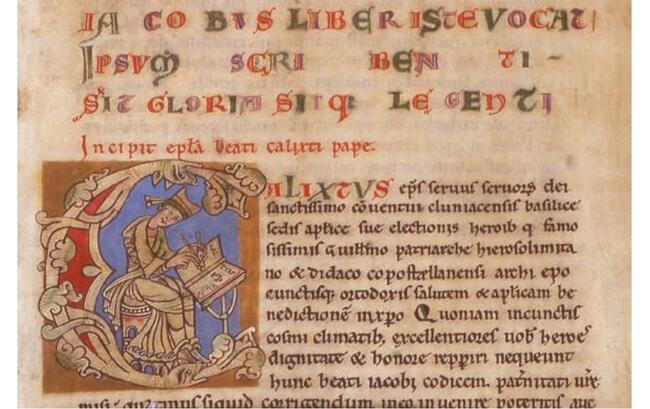 IACOBUS LIBER ISTE VOCAT
IPSUM SCRIBENTI
SIT GLORIA SITQ: LEGENTI
Incipit epła beati calixti pape.
CALIXTUS ep̄s seruus seruoꝝ dei
sanctissimo cōuentui cluniacensis basilice
sedis aplice sue electionis heroib; q; famo
sissimis Guillmo patriarche hierosolimita
no & didaco copostellanensi archi epo
cunctisq; ortodoxis salutem & aplicam be
nedictionē in xpo Quoniam in cunctis
cosmi climatib; excellentiores uob heroes
dignitate & honore repiri nequeunt
hunc beati iacobi codicem pat̄nitati ur̄e
misi quatinus siquid corrigendum in eo inuenire poteritis auc